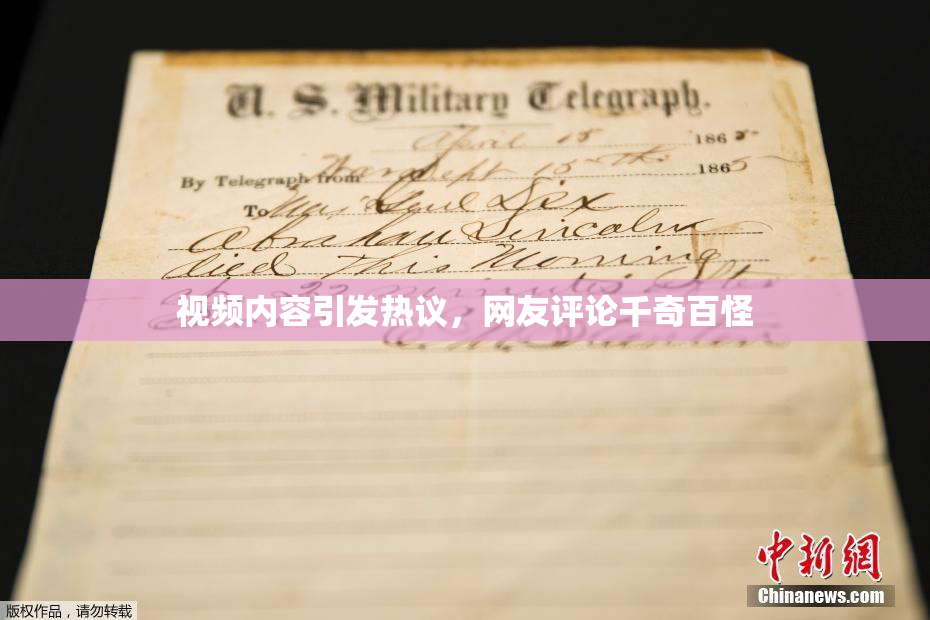 U. S. Military Telegraph.
April 15 1865
By Telegraph from War Dept 15th 1865
To Maj Genl Dix
Abraham Lincoln
died This Morning
at 22 minutes after
视频内容引发热议，网友评论千奇百怪
E. M. Stanton
中新网
Chinanews.com
版权作品，请勿转载